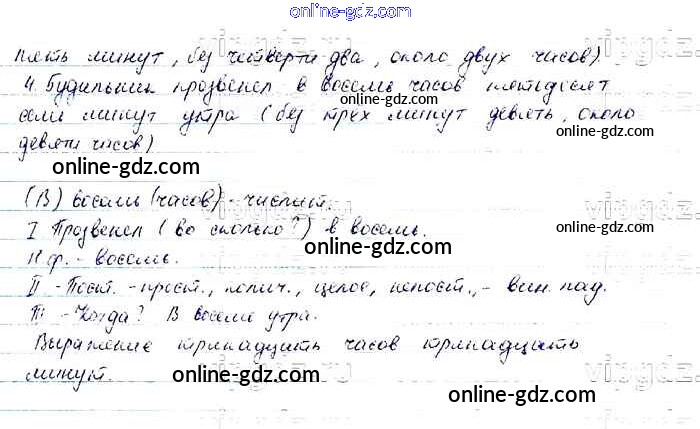 online-gdz.com
пять минут, без четверти два, около двух часов).
4. Будильник прозвенел в восемь часов пятьдесят
семь минут утра (без трех минут девять, около
девяти часов)
online-gdz.com
online-gdz.com
(В) восемь (часов) - числит.
I Прозвенел (во сколько?) в восемь.
online-gdz.com
Н.ф. - восемь.
II - Пост. - прост., колич., целое, непост., - вин. пад.
III - Когда? В восемь утра.
Выражение тринадцать часов тринадцать
минут.
online-gdz.com
online-gdz.com